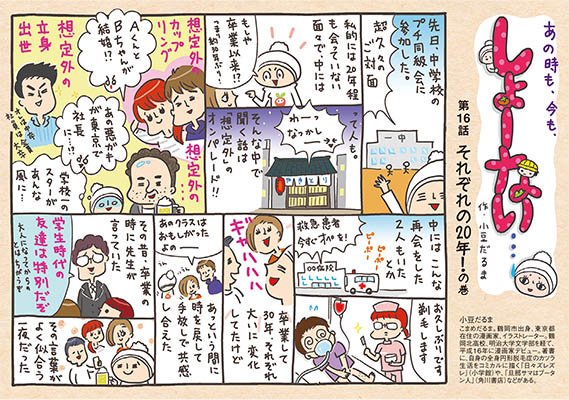 あの時も、今も、
しょーない……
第16話 それぞれの20年!の巻
作 小豆だるま
先日、中学校の
プチ同級会に
参加した。
超久々の
ご対面
一中
私的には20年程
も会っていない
面々で、中には
もしや
卒業以来!?
つまり約30年ぶり!
ってんも。
わーっ
なつかしー
やきとり
そんな中で
聞く話は
「想定外」の
オンパレード!!
想定外の
カップ
リング
Aくんと
Bちゃんが
結婚!?
想定外の
立身
出世
あの悪がき
が東京で
社長に…!?
想定外の
学校一の
スターが
あんな
風に…
中にはこんな
再会をした
2人もいた
ピーポー
ピーポー
救急患者
今すぐオペを!
○○病院
お久しぶりです
剃毛します
ギャハハハ
卒業して
30年、それぞれ
大いに変化
してたけど
あのクラスは
おもしろかった
よのー
あっという間に
時を戻して
手放しで共感
し合えた
その昔、卒業の
時に先生が
言っていた
学生時代の
友達は特別だぞ
大人になってからの
とはちがうぞ
その言葉が
よく似合う
一夜だった
小豆だるま
こまめだるま。鶴岡市出身、東京都
在住の漫画家、イラストレーター。鶴
岡北高校、明治大学文学部を経て、
平成16年に漫画家デビュー。著書
に、自身の全身円形脱毛症のカツラ
生活をコミカルに描く「日々ズレズ
レ」(小学館)や、「旦那サマはブータ
ン人」(角川書店)などがある。